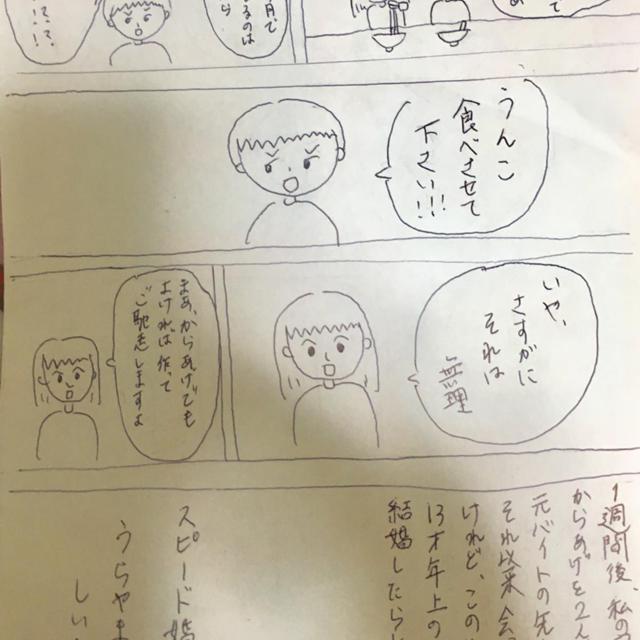 うんこ
食べさせて
下さい!!!
いや、
さすがに
それは
無理
まあ、からあげでも
よければ作って
ご馳走しますよ
1週間後、私の
からあげを2人
元バイトの先
それ以来会
けれど、この
13才年上の
結婚したら
スピード婚
うらやま
しい